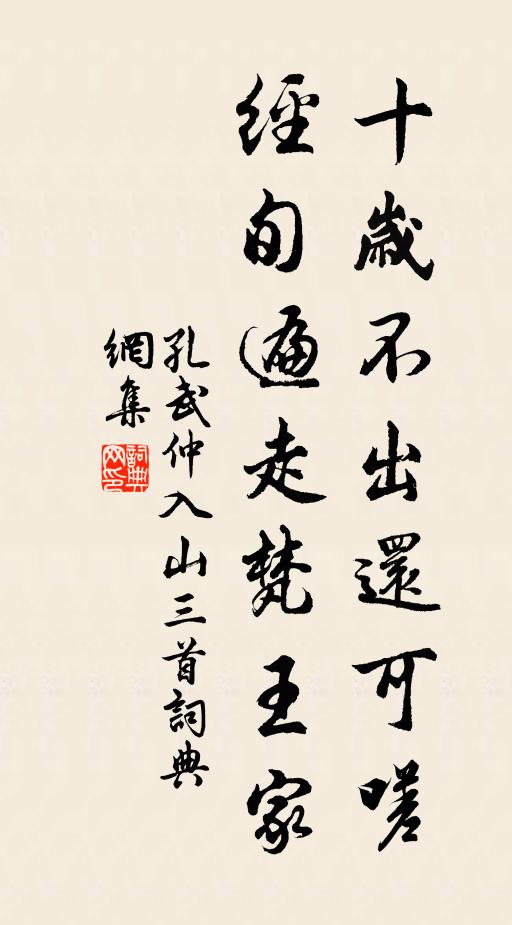 十歲不出還可嗟
經旬遍走梵王家
孔武仲入山三首詞典
網集
詞典網印